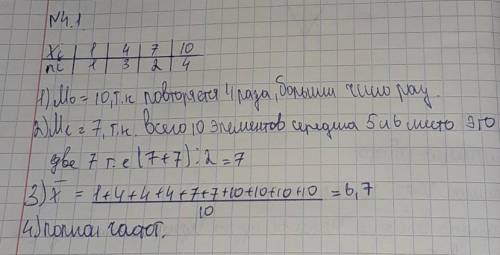 №4.1
Xi 1 4 7 10
ni 1 3 2 4
1) Mo = 10, т.к повторяется 4 раза, большим число раз.
2) Me = 7, т.к. всего 10 элементов середина 5 и 6 место это
две 7 т.е (7+7):2 = 7
3) x̄ = 1+4+4+4+7+7+10+10+10+10 / 10 = 6,7
4) полигон частот.